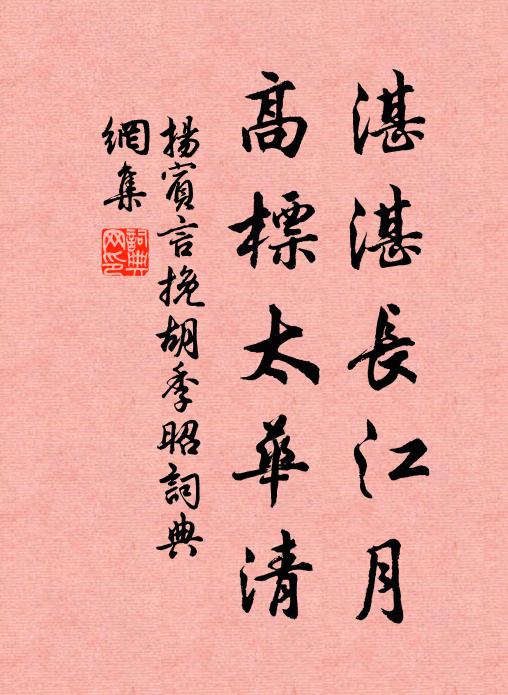 湛湛長江月
高標太華清
揚賓言挽胡季昭詞典
網集
詞典網印